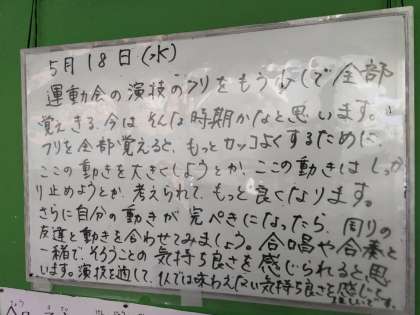 5月18日(水)
運動会の演技のフリをもう少しで全部
覚えきる、今はそんな時期かなと思います。
フリを全部覚えると、もっとカッコよくするために、
ここの動きを大きくしようとか、ここの動きはしっか
り止めようとか、考えられて、もっと良くなります。
さらに自分の動きが完ぺきになったら、周りの
友達と動きを合わせてみましょう。合唱や合奏と
一緒で、そろうことの気持ち良さを感じられると思
います。演技を通して、1人では味わえない気持ち良さを感じて
ほしいです。